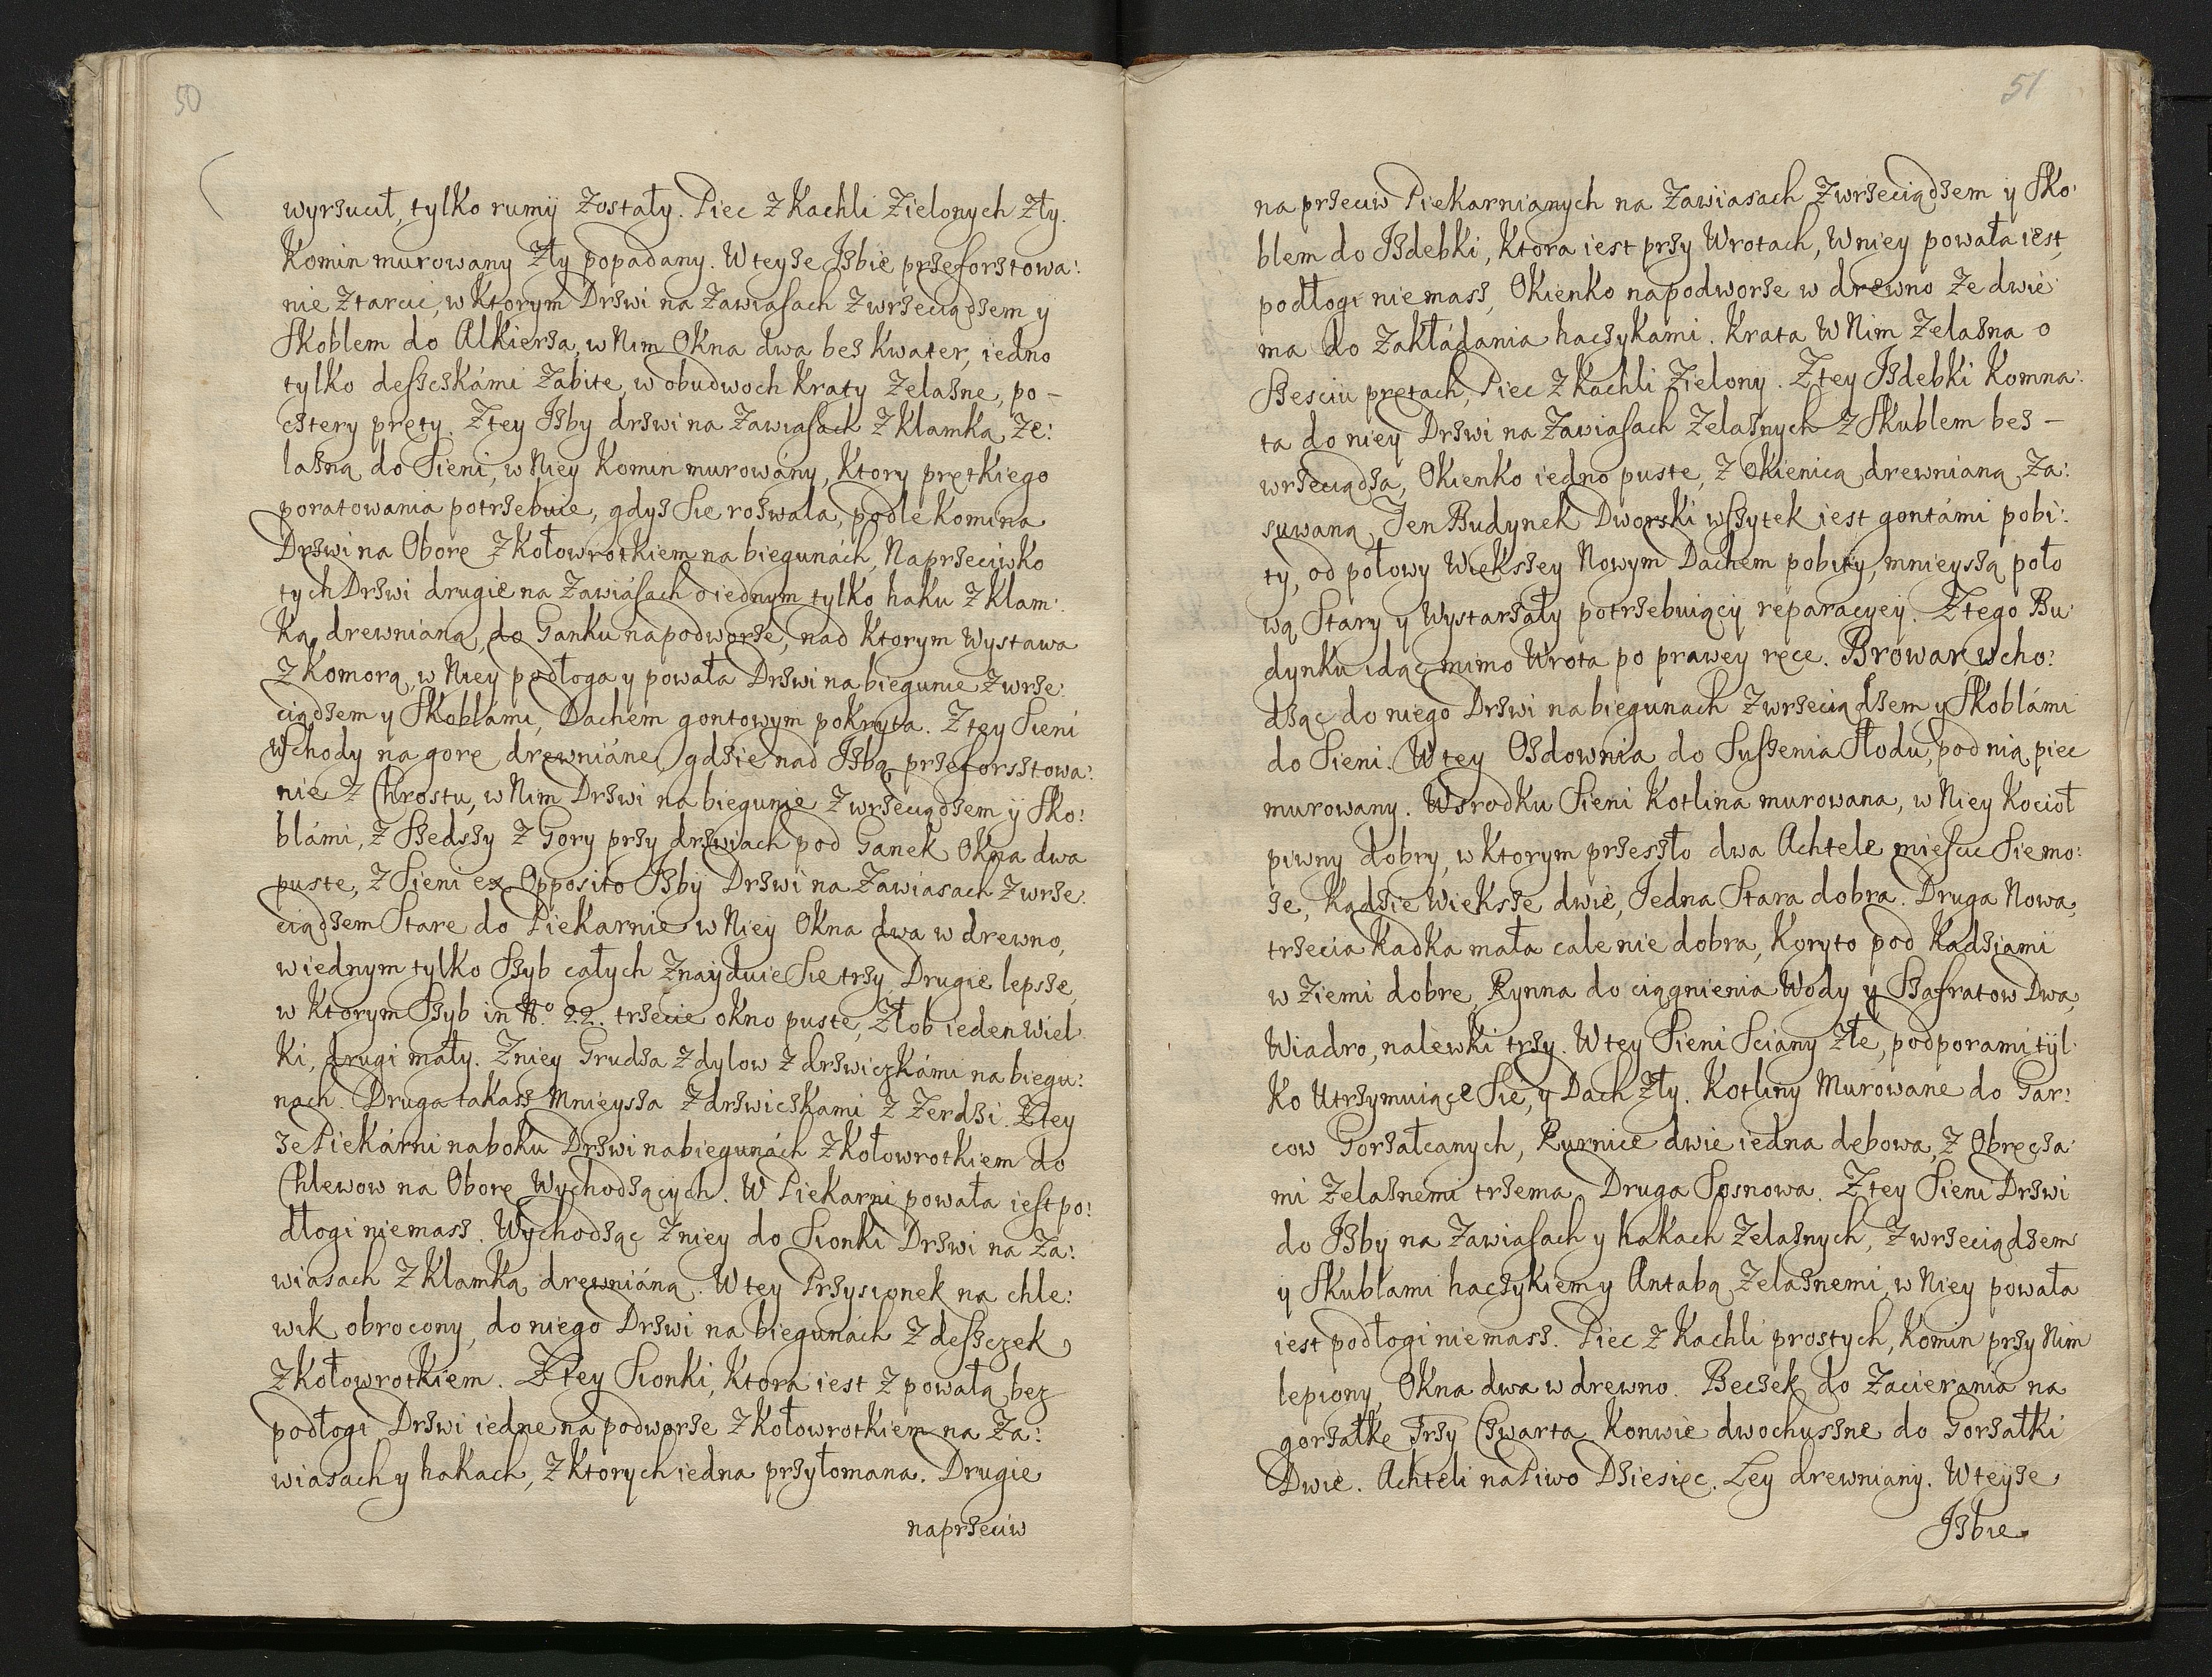 50
wyrzucił, tylko rumy zostały. Piec z Kachli Zielonych Zły.
Komin murowany Zły popadany. W teyze Jzbie przeforsztowa:
nie z tarcic, w Ktorym Drzwi na Zawiasach z wrzeciądzem y
Skoblem do Alkierza, w Nim Okna dwa bez Kwater, iedno
tylko deszczkámi Zabite, w obudwoch Kraty Zelazne, po –
cztery pręty. Z tey Jzby drzwi na Zawiasach z Klamką Ze:
lazną do Sieni, w Niey Komin murowány, Ktory prętkiego
poratowania potrzebuie, gdyz Sie rozwala, podle Komina
Drzwi na Oborę z Kołowrotkiem na biegunách, Naprzeciwko
tych Drzwi drugie na Zawiásach o iednym tylko haku z Klam:
ką drewnianą, do Ganku na podworze, nad Ktorym Wystawa
z Komorą, w Niey podłoga y powała Drzwi na biegunie z wrze:
ciądzem y Skoblámi, Dachem gontowym pokryta. Z tey Sieni
Wschody na gorę drewniáne, gdzie nad Jzbą przeforsztowa:
nie z Chrostu, w Nim Drzwi na biegunie z wrzeciądzem y Sko:
blámi, z Szedszy z Gory przy drzwiach pod Ganek Okna dwa
puste, z Sieni ex Opposito Jzby Drzwi na Zawiasach z wrze:
ciądzem Stare do Piekarnie w Niey Okna dwa w drewno,
w iednym tylko Szyb całych Znayduie Sie trzy, Drugie lepsze,
w Ktorym Szyb in No. 22. trzecie okno puste, Złob ieden Wiel
ki, drugi mały. Z niey Grudza z dylow z drzwiczkámi na biegu:
nach. Druga takasz Mnieysza z drzwiczkami z Zerdzi. Z tey
ze Piekárni na boku Drzwi na biegunách z Kołowrotkiem do
Chlewow na Oborę Wychodzących. W Piekarni powała iest po:
dłogi niemasz. Wychodząc z niey do Sionki Drzwi na Za:
wiasach z Klamką drewniáną. W tey Przysionek na chle:
wik obrocony, do niego Drzwi na biegunách z deszczek
z Kołowrotkiem. Z tey Sionki, Ktora iest z powałą bez
podłogi Drzwi iedne na podworze z Kołowrotkiem na Za:
wiasach y hakach, z Ktorych iedna przyłomana. Drugie
naprzeciw
51
na przeciw Piekarnianych na Zawiasach z wrzeciądzem y Sko:
blem do Jzdebki, Ktora iest przy Wrotach, W niey powała iest,
podłogi niemasz, Okienko na podworze w drewno Ze dwie:
ma do Zakłádania haczykami. Krata W Nim Zelazna o
Szesciu prętach, Piec z Kachli Zielony. Z tey Jzdebki Komna:
ta do niey Drzwi na Zawiasach Zelaznych z Skublem bez –
wrzeciądza, Okienko iedno puste, z Okienicą drewnianą Za:
suwaną, Ten Budynek Dworski wszytek iest gontámi pobi:
ty, od połowy Większey Nowym Dachem pobity, mnieyszą poło
wą Stary y Wystarzały potrzebuiący reparacyey. Z tego Bu:
dynku idąc mimo Wrota po prawey ręce. Browar, wcho:
dząc do niego Drzwi na biegunach z wrzeciądzem y Skoblámi
do Sieni. W tey Ozdownia do Suszenia Słodu, pod nią piec
murowany. Wsrodku Sieni Kotlina murowana, w Niey Kocioł
piwny dobry, w Ktorym przeszło dwa Achtele miescic Sie mo:
ze, Kądzie Większe dwie, Jedna Stara dobra. Druga Nowa,
trzecia Kadka mała cale nie dobra, Koryto pod Kadziami
w Ziemi dobre, Rynna do ciągnienia Wody y Szafratow Dwa,
Wiadro, nalewki trzy. W tey Sieni Sciany Złe, podporami tyl:
ko Utrzymuiące Sie, y Dach Zły. Kotliny Murowane do Gar:
cow Gorzałcanych, Rurnice dwie iedna dębowa, z Obręcza:
mi Zelaznemi trzema, Druga Sosnowa. Z tey Sieni Drzwi
do Jzby na Zawiasach y hakach Zelaznych, z wrzeciądzem
y Skublami haczykiem y Antabą Zelaznemi, w Niey powała
iest podłogi niemasz. Piec z Kachli prostych, Komin przy Nim
lepiony, Okna dwa w drewno. Beczek do Zacierania na
gorzałkę Trzy Czwarta Konwie dwochuszne do Gorzałki
Dwie. Achteli na Piwo Dziesięc. Ley drewniany. W teyze
Jzbie